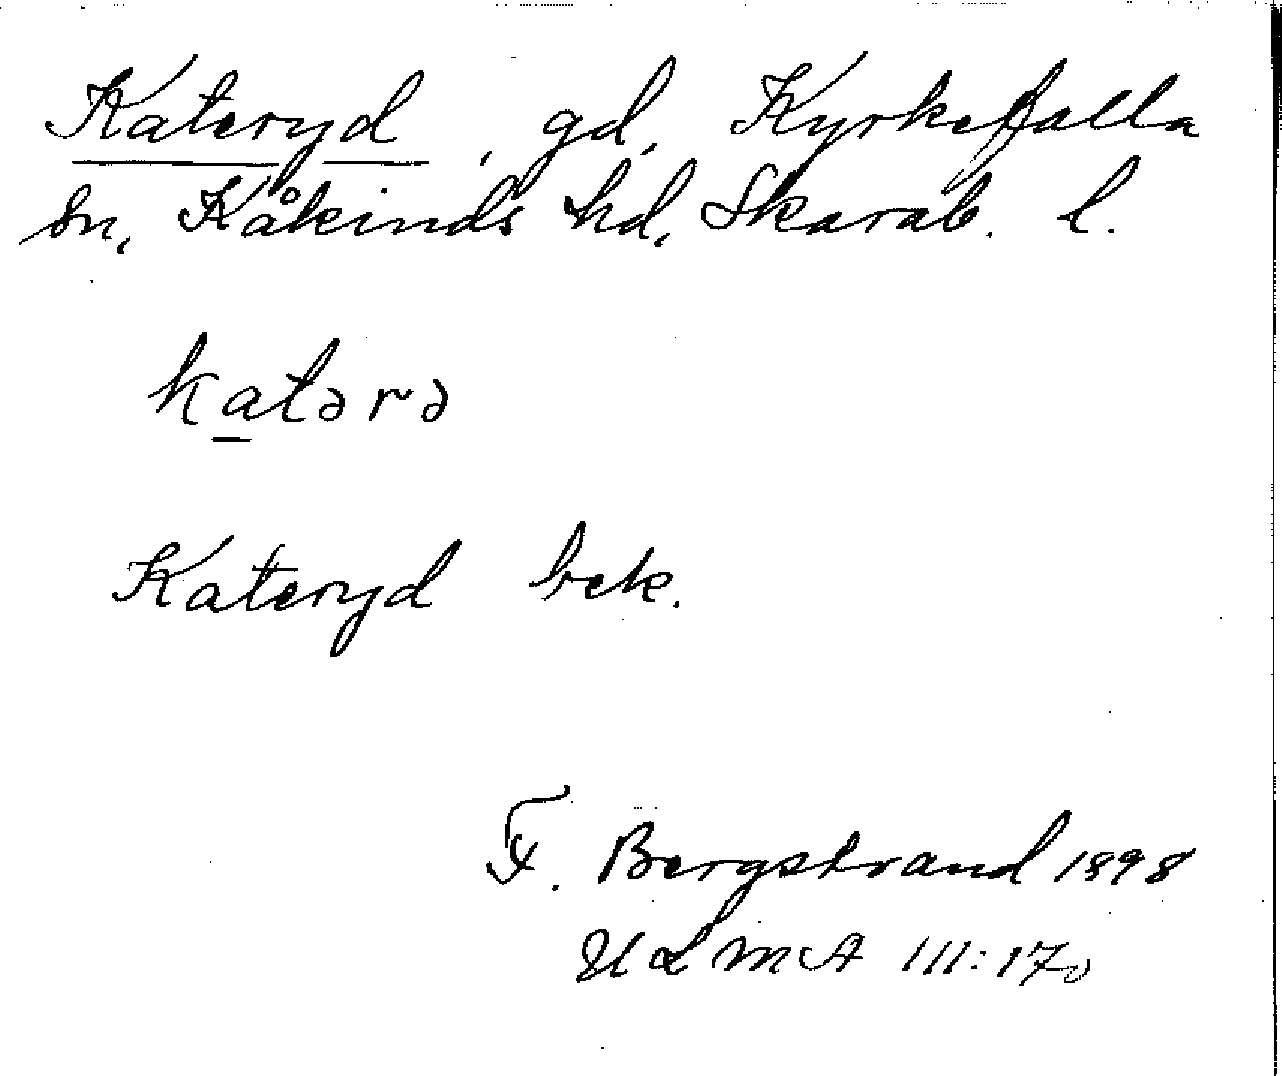 Kateryd, gd, Kyrkefalla
sn, Kåkinds hd, Skarab. l.
katərə
Kateryd bek.
F. Bergstrand 1898
ULMA III:170